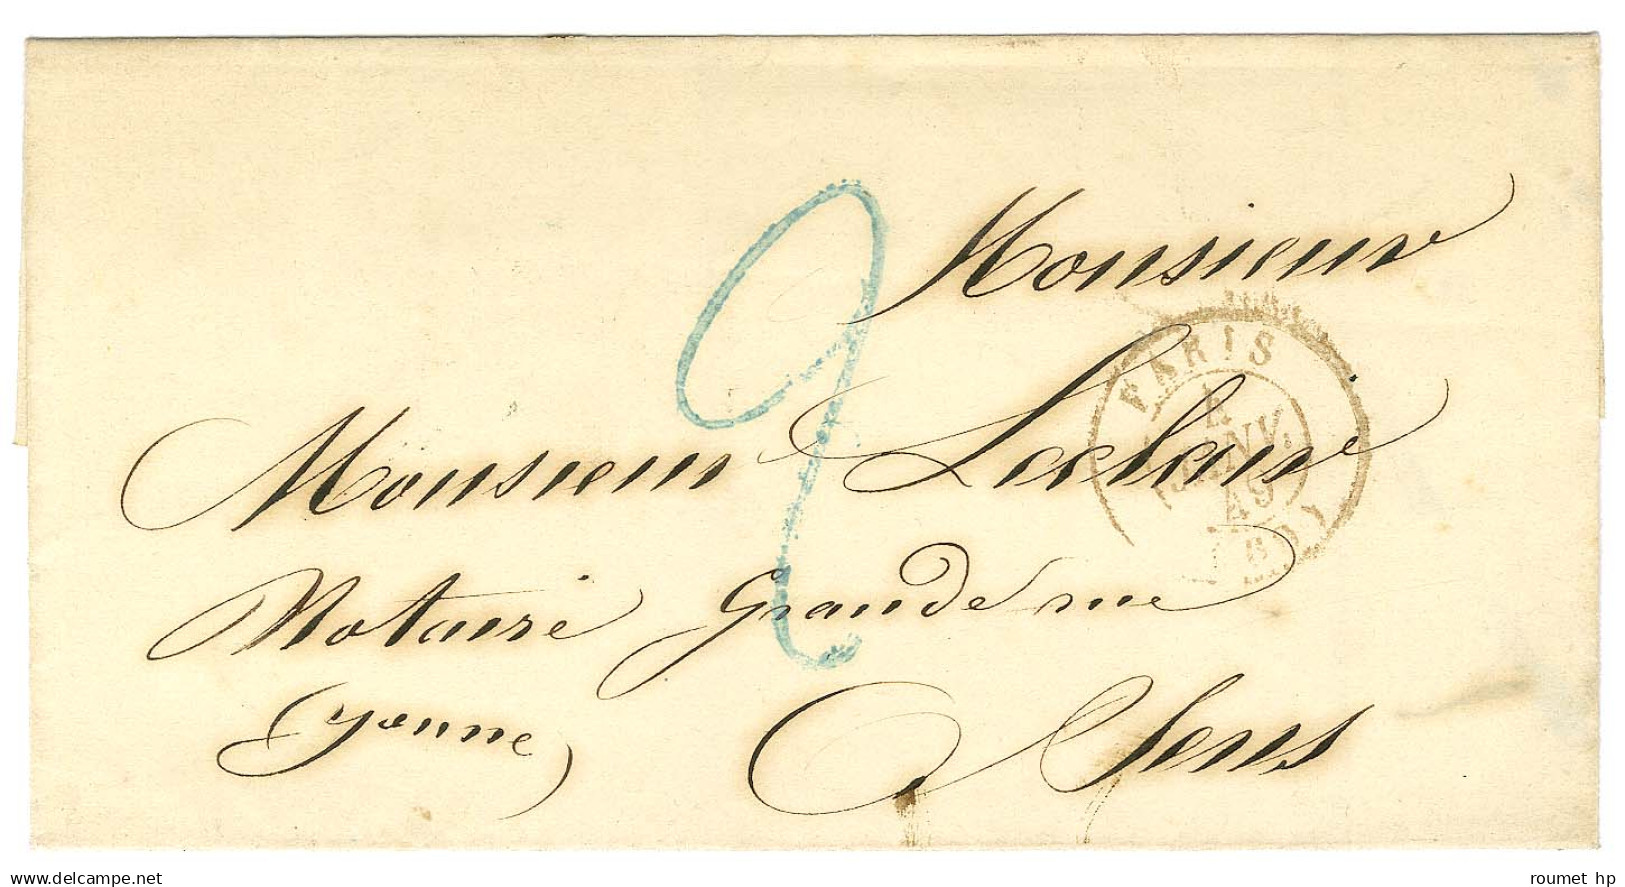 Monsieur
Monsieur Leclair
Notaire Grande rue
(yonne) A Sens
2
PARIS
JANV.
49
(60)
www.delcampe.net
roumet hp